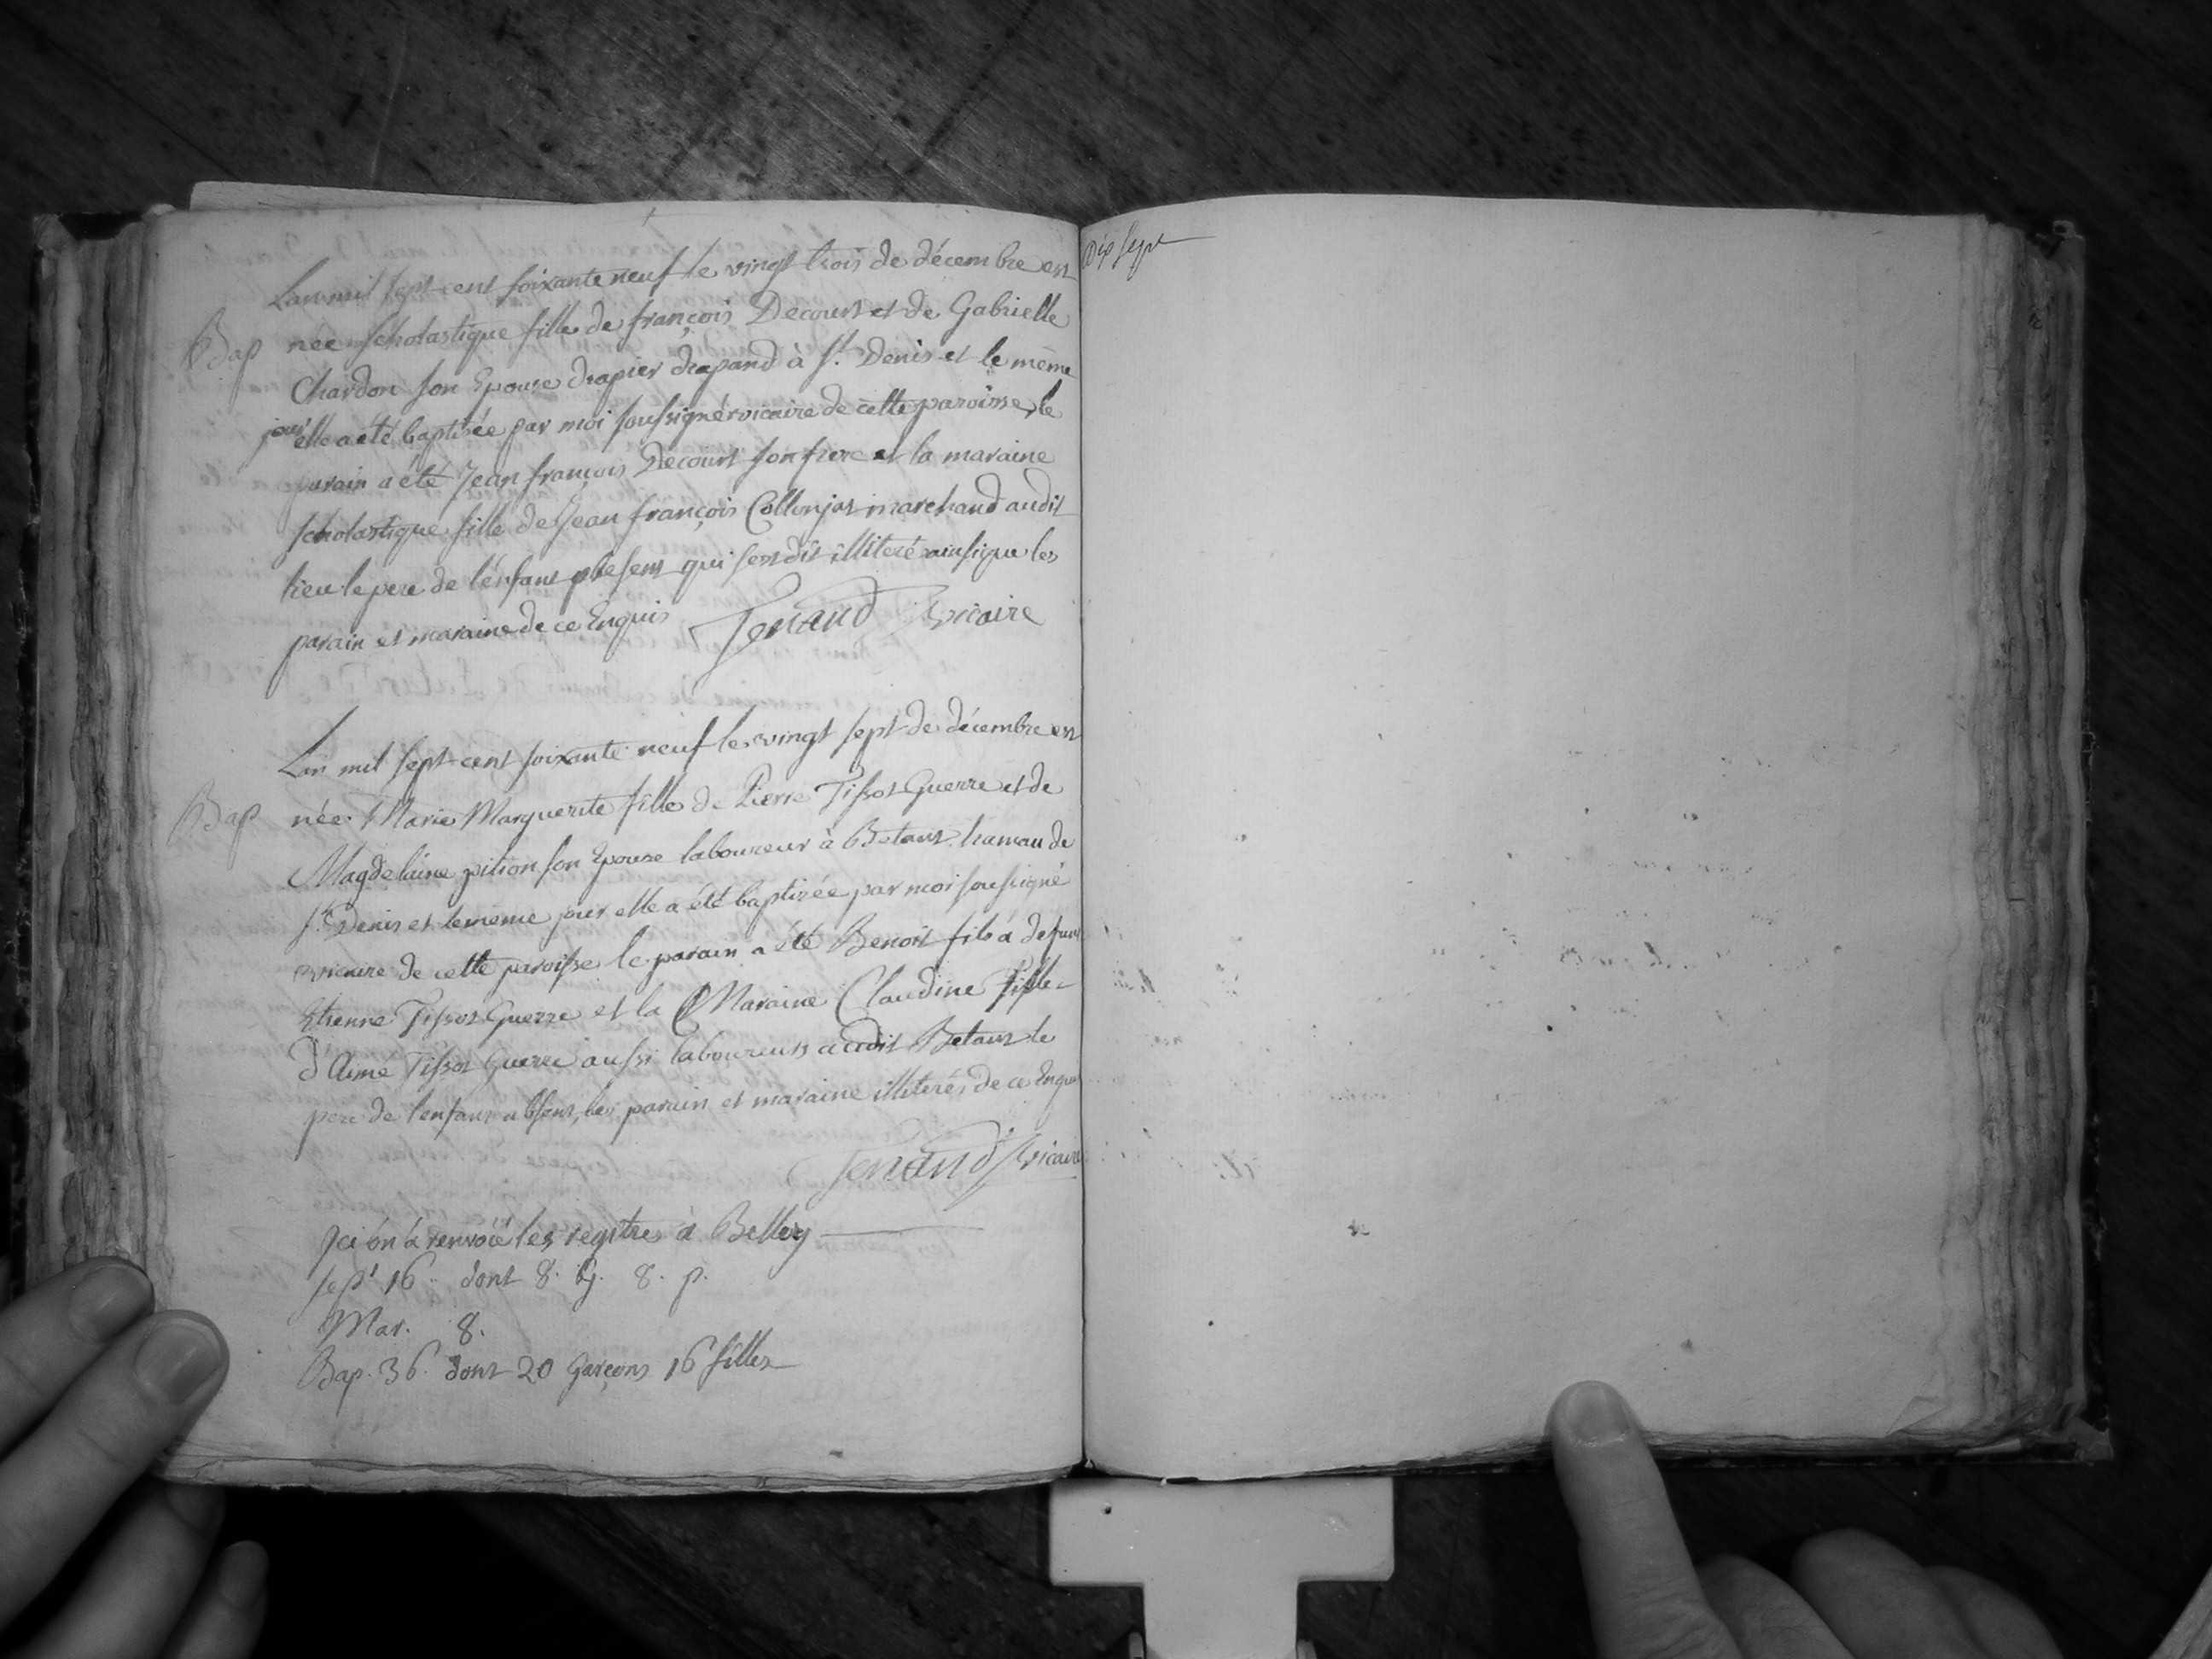 Lan mil sept cent soixante neuf le vingt trois de décembre est
Bap née scholastique fille de françois Decourt et de Gabrielle
Chardon son Epouse drapier drapand à St. Denis et le même
jour elle a été baptisée par moi soussigné vicaire de cette paroisse, le
parain a été Jean françois Decourt son frere et la maraine
scholastique fille de Jean françois Collonjat marchand audit
lieu le pere de l'enfant présent qui s'est dit illiteré ainsi que les
parain et maraine de ce Enquis Jenand vicaire
Lan mil sept cent soixante neuf le vingt sept de décembre est
Bap née Marie Marguerite fille de Pierre Tissot Guerre et de
Magdelaine pition son Epouse laboureur à Betant hamau de
St. Denis et le meme jour elle a été baptisée par moi soussigné
vicaire de cette paroisse le parain a été Benoit fils à defunt
Etienne Tissot Guerre et la Maraine Claudine fille
d'Aimé Tissot Guerre aussi laboureurs audit Betant le
pere de l'enfant absent, les parain et maraine illiterés de ce Enquis
Jenand vicaire
Ici on a renvoié les registres à Belley
sept 16 dont 8. G. 8. p.
Mar. 8.
Bap. 36. dont 20 garçons 16 filles
Dix sept